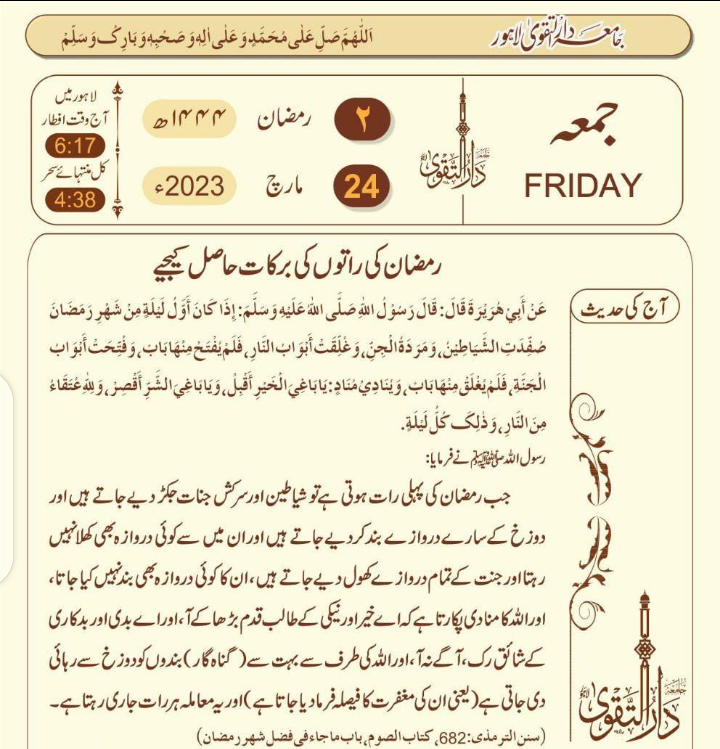 جامعہ دارالتقویٰ لاہور
اَللّٰھُمَّ صَلِّ عَلٰی مُحَمَّدٍ وَعَلٰی اٰلِهٖ وَصَحْبِهٖ وَبَارِکْ وَسَلِّمْ
جمعہ
FRIDAY
جامعہ دارالتقویٰ
۲ رمضان ۱۴۴۴ھ
24 مارچ 2023ء
لاہور میں
آج وقت افطار
6:17
کل منتہائے سحر
4:38
رمضان کی راتوں کی برکات حاصل کیجیے
آج کی حدیث
عَنْ أَبِيْ هُرَيْرَةَ قَالَ: قَالَ رَسُوْلُ اللهِ صَلَّى اللهُ عَلَيْهِ وَسَلَّمَ: إِذَا كَانَ أَوَّلُ لَيْلَةٍ مِنْ شَهْرِ رَمَضَانَ
صُفِّدَتِ الشَّيَاطِيْنُ، وَمَرَدَةُ الْجِنِّ، وَغُلِّقَتْ أَبْوَابُ النَّارِ، فَلَمْ يُفْتَحْ مِنْهَا بَابٌ، وَفُتِحَتْ أَبْوَابُ
الْجَنَّةِ، فَلَمْ يُغْلَقْ مِنْهَا بَابٌ، وَيُنَادِيْ مُنَادٍ: يَا بَاغِيَ الْخَيْرِ أَقْبِلْ، وَيَا بَاغِيَ الشَّرِّ أَقْصِرْ، وَلِلّٰهِ عُتَقَاءُ
مِنَ النَّارِ، وَذٰلِکَ كُلُّ لَيْلَةٍ.
رسول اللہ ﷺ نے فرمایا:
جب رمضان کی پہلی رات ہوتی ہے تو شیاطین اور سرکش جنات جکڑ دیے جاتے ہیں اور
دوزخ کے سارے دروازے بند کر دیے جاتے ہیں اور ان میں سے کوئی دروازہ بھی کھلا نہیں
رہتا اور جنت کے تمام دروازے کھول دیے جاتے ہیں، ان کا کوئی دروازہ بھی بند نہیں کیا جاتا،
اور اللہ کا منادی پکارتا ہے کہ اے خیر اور نیکی کے طالب قدم بڑھا کے آ، اور اے بدی اور بدکاری
کے شائق رک، آگے نہ آ، اور اللہ کی طرف سے بہت سے (گناہ گار) بندوں کو دوزخ سے رہائی
دی جاتی ہے (یعنی ان کی مغفرت کا فیصلہ فرما دیا جاتا ہے) اور یہ معاملہ ہر رات جاری رہتا ہے۔
(سنن الترمذی: 682، کتاب الصوم، باب ماجاء فی فضل شهر رمضان)
جامعہ دارالتقویٰ